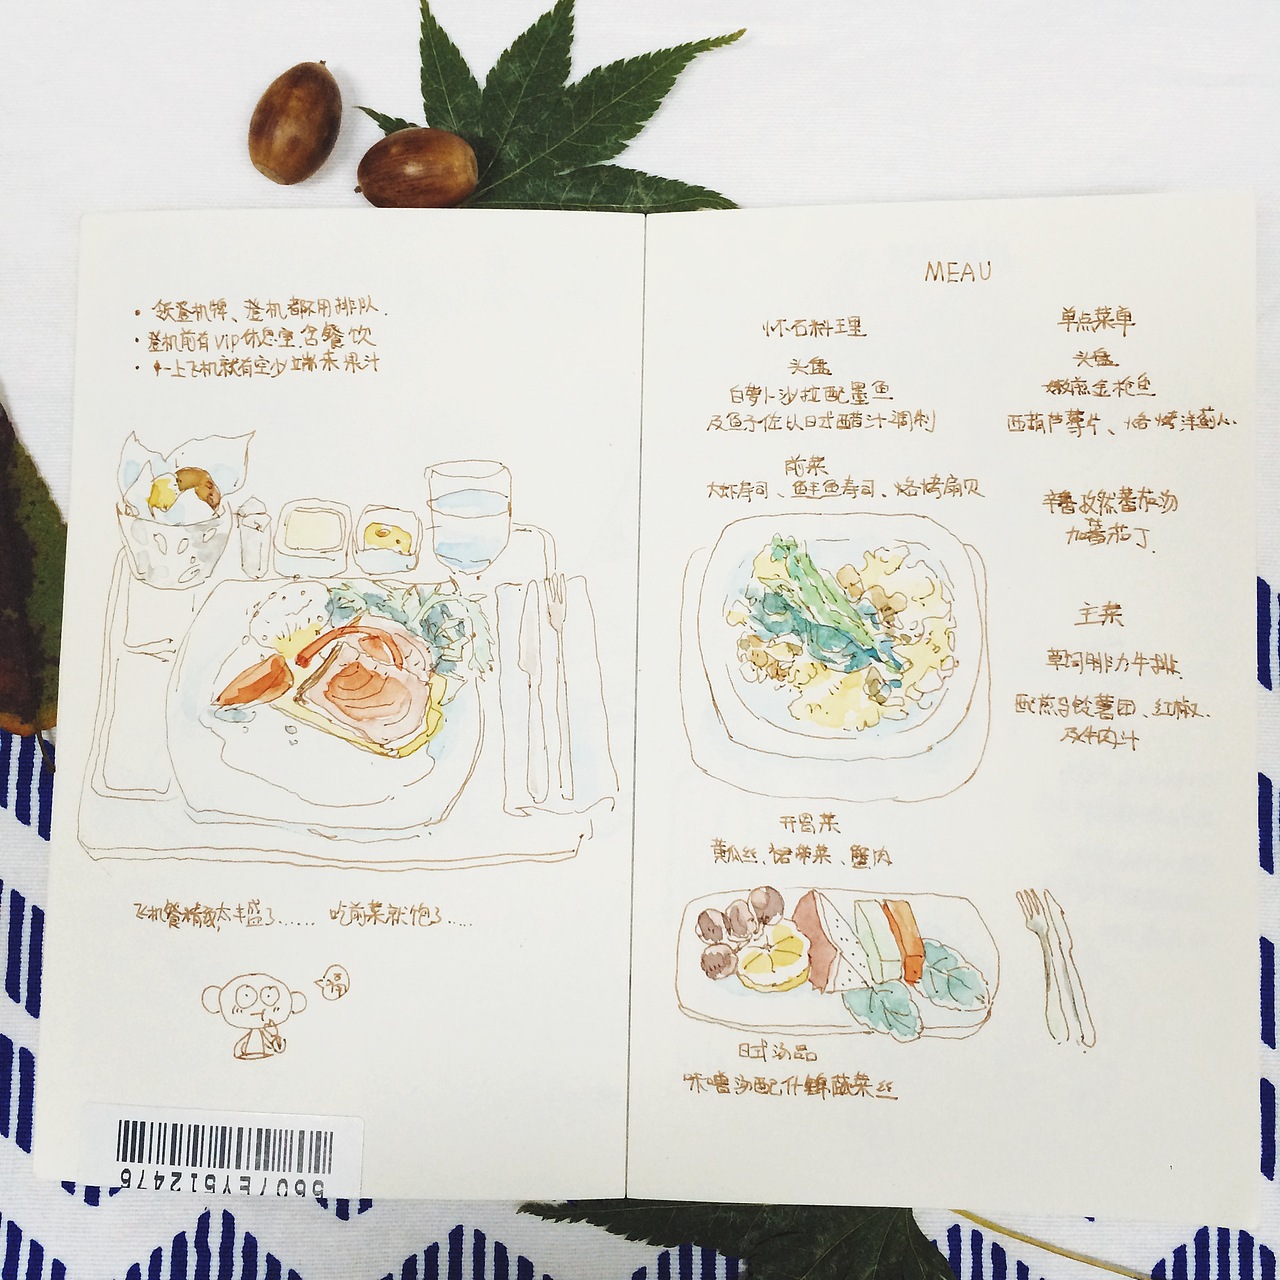 • 领登机牌、登机都不用排队.
• 登机前有vip休息室含餐饮
• 一上飞机就有空少端来果汁
飞机餐精致太丰盛了…… 吃前菜就饱了……
福
5607EY512475
MEAU
怀石料理
头盘
白萝卜沙拉配墨鱼
及鱼子佐以日式醋汁调制
前菜
大虾寿司、鲜鱼寿司、烙烤扇贝
开胃菜
黄瓜丝、裙带菜、蟹肉
日式汤品
味噌汤配什锦蔬菜丝
单点菜单
头盘
嫩煎金枪鱼
西葫芦薄片、烙烤洋蓟心.
辛香孜然蕃茄汤
加蕃茄丁.
主菜
草饲腓力牛排
配煎马铃薯团、红椒.
及牛肉汁